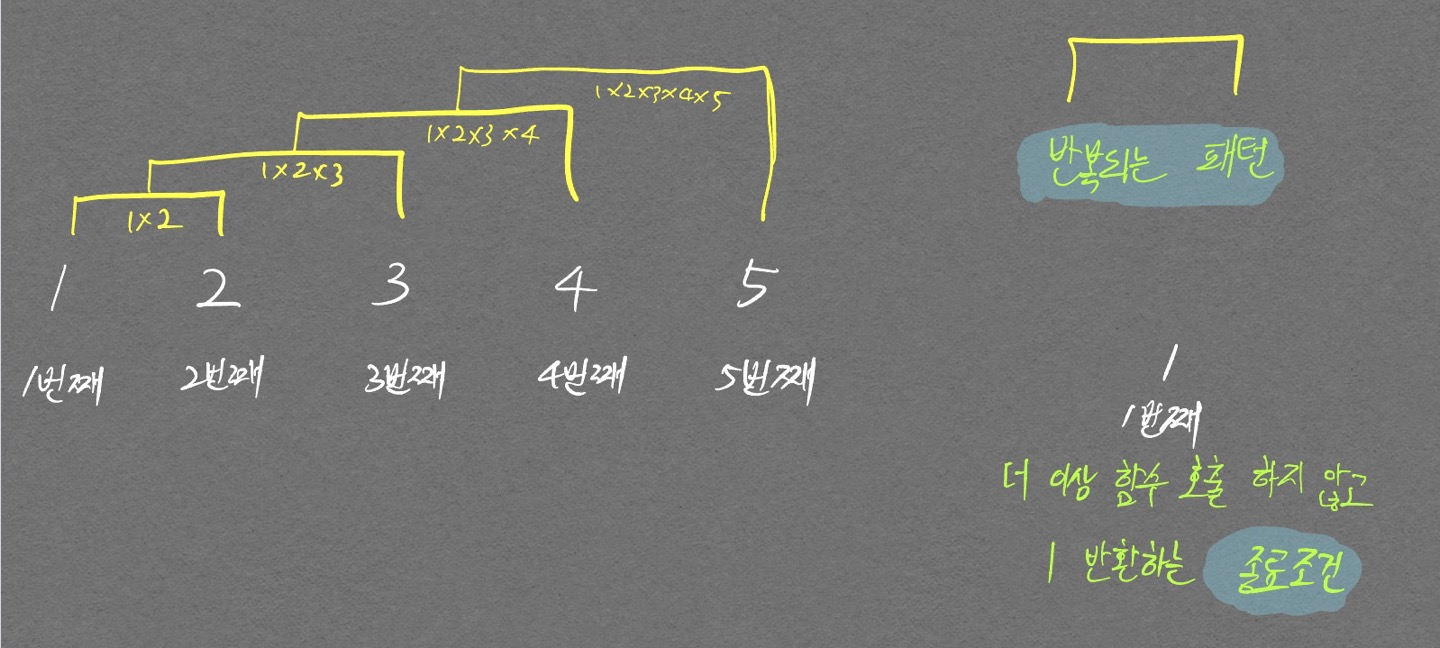 1×2×3×4×5
1×2×3×4
1×2×3
1×2
1 2 3 4 5
1번째 2번째 3번째 4번째 5번째
반복되는 패턴
1
1번째
더 이상 함수 호출 하지 않고
1 반환하는 종료조건